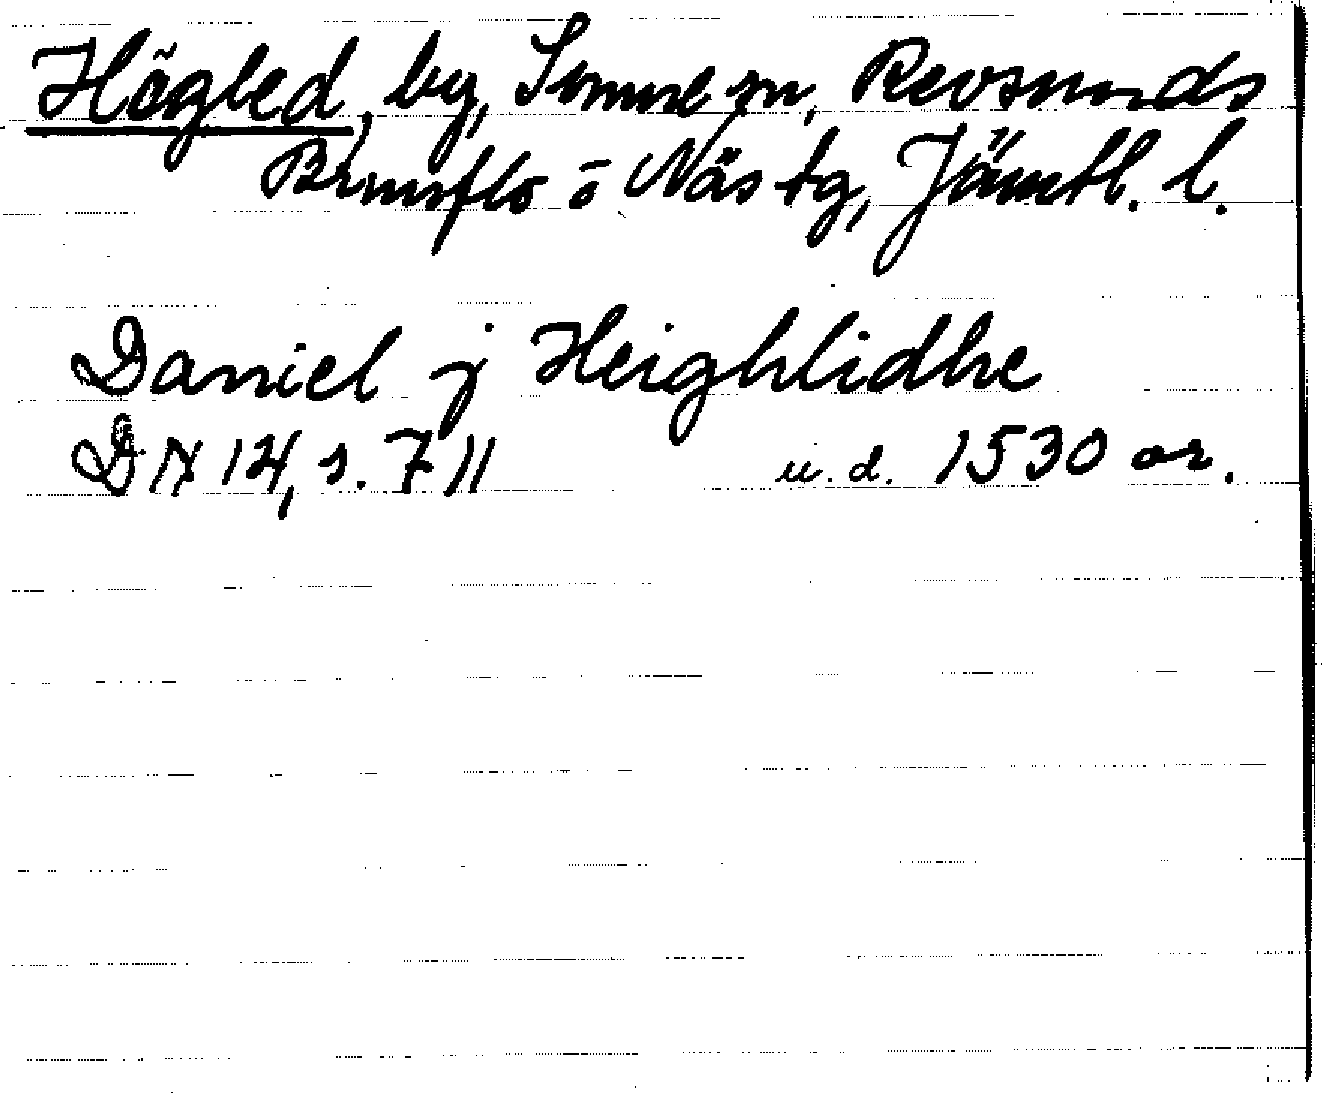 Högled, by, Sunne sn, Revsunds
Brunflo o Näs tg, Jämtl. l.
Daniel j Heighlidhe
DN 14, s. 711 u. d. 1530 or.